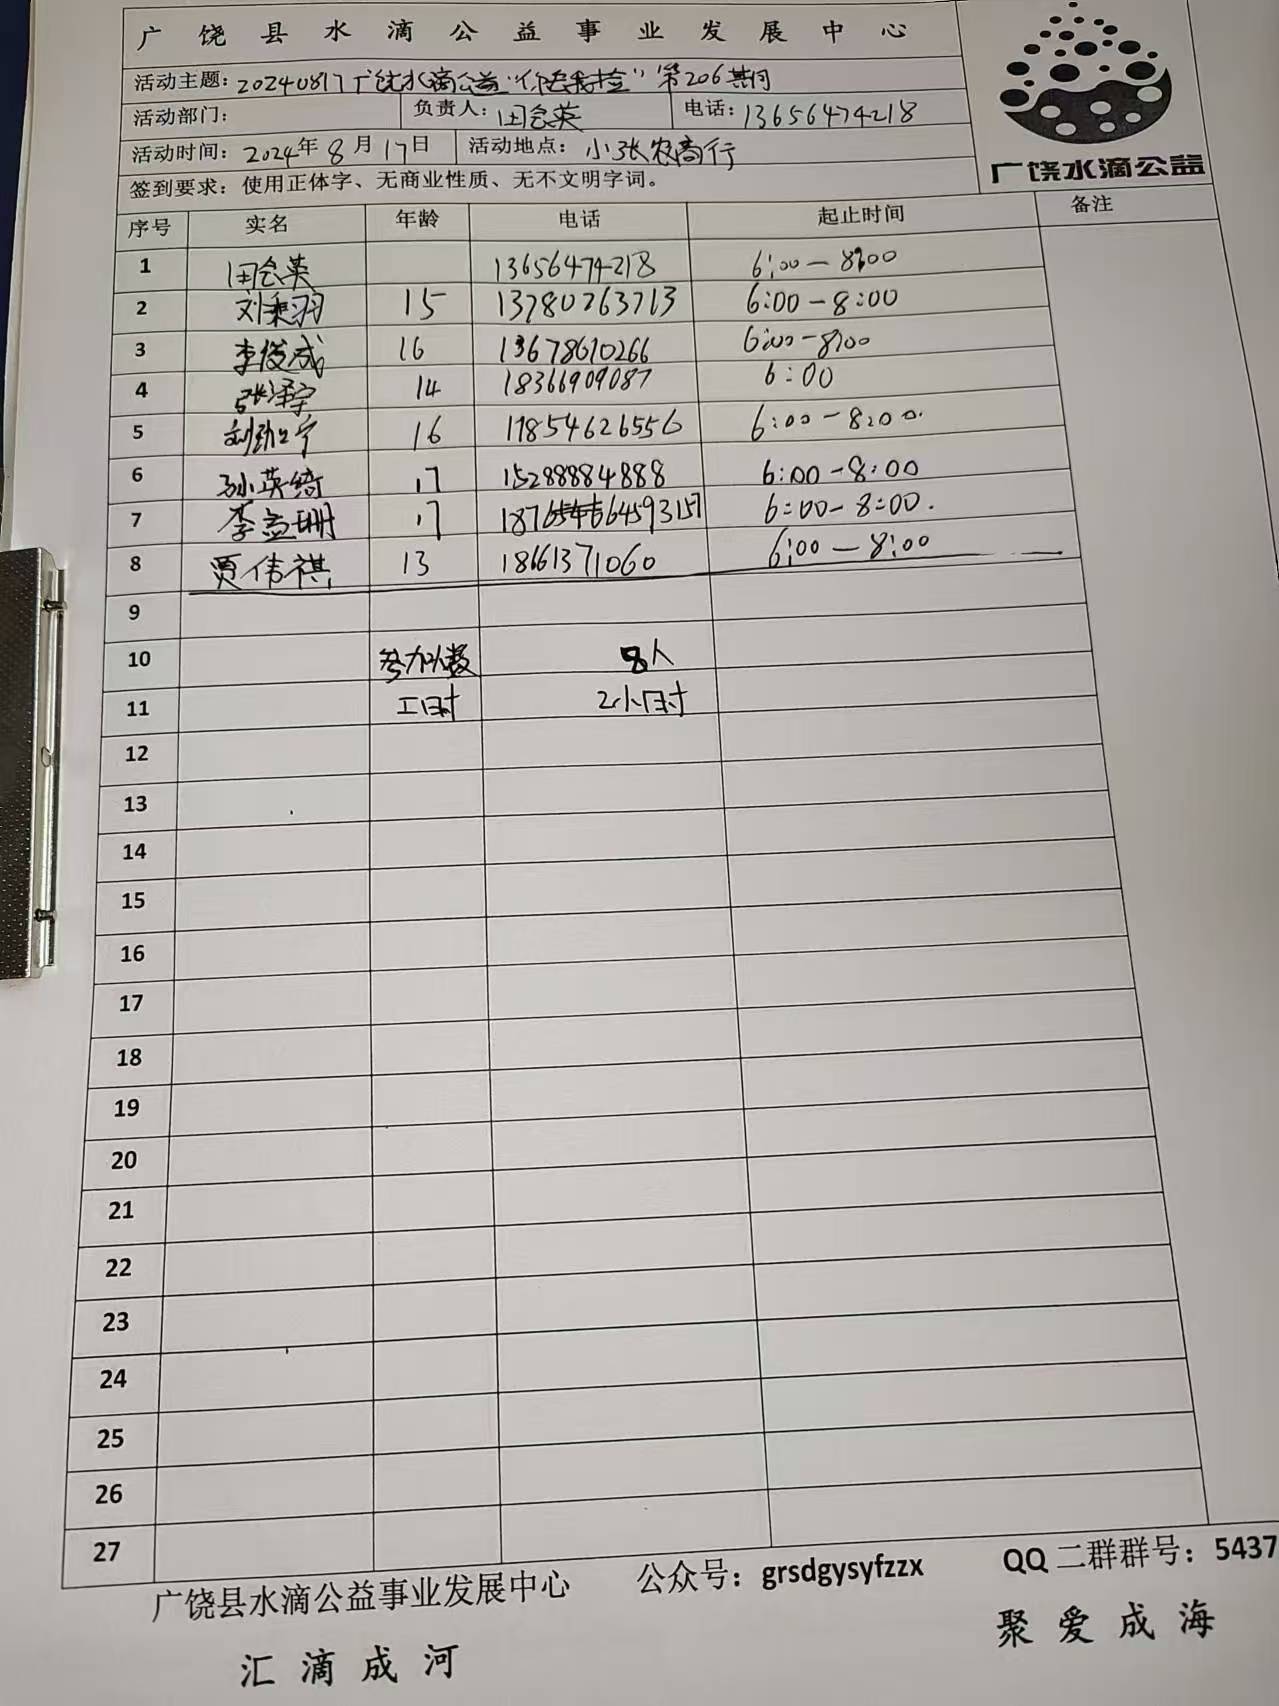 广饶县水滴公益事业发展中心
活动主题：20240817广饶水滴公益"你丢我捡"第206期
活动部门： 负责人：田会英 电话：13656474218
活动时间：2024年8月17日 活动地点：小张农商行
签到要求：使用正体字、无商业性质、无不文明字词。
广饶水滴公益
序号 实名 年龄 电话 起止时间 备注
1 田会英 13656474218 6:00-8:00
2 刘乘羽 15 13780763713 6:00-8:00
3 李俊成 16 13678610266 6:00-8:00
4 张泽宇 14 18366909087 6:00
5 刘 宁 16 17854626556 6:00-8:00.
6 孙英绮 17 15288884888 6:00-8:00
7 李益珊 17 6:00-8:00.
8 贾伟祺 13 18661371060 6:00-8:00
9
10 参加人数 8人
11 工时 2小时
12
13
14
15
16
17
18
19
20
21
22
23
24
25
26
27
广饶县水滴公益事业发展中心 公众号：grsdgysyfzzx QQ二群群号：5437
汇滴成河 聚爱成海